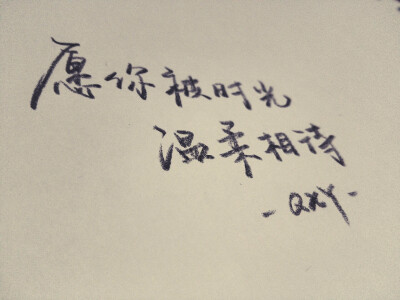 愿你被时光
温柔相待
-QXY-